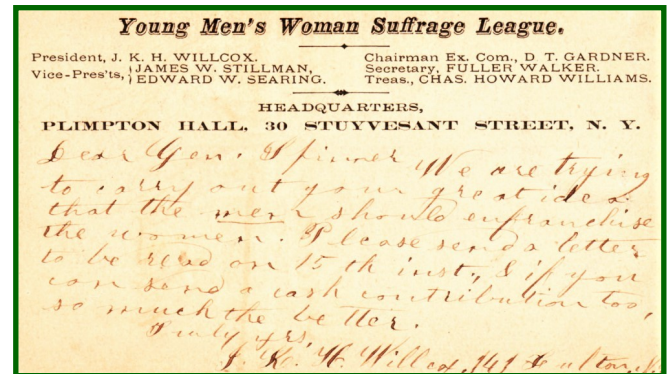 Young Men's Woman Suffrage League.
President, J. K. H. WILLCOX.
Vice-Pres'ts, { JAMES W. STILLMAN,
EDWARD W. SEARING.
Chairman Ex. Com., D T. GARDNER.
Secretary, FULLER WALKER.
Treas., CHAS. HOWARD WILLIAMS.
HEADQUARTERS,
PLIMPTON HALL, 30 STUYVESANT STREET, N. Y.
Dear Gen. Spinner We are trying
to carry out your great idea
that the men should enfranchise
the women. Please send a letter
to be read on 15th inst., & if you
can send a cash contribution too,
so much the better.
Truly yrs,
J. K. H. Willcox, 141 Fulton,